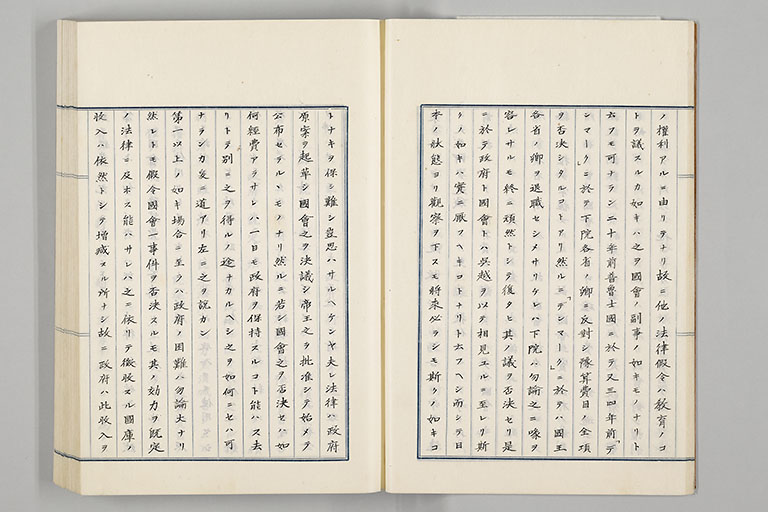 ノ權利アルニ由リテナリ故ニ他ノ法律假令ハ教育ノコ
トヲ議スルカ如キハ之ヲ國會ノ副事ノ如キモノナリト
云フモ可ナラン二十年前普魯士國ニ於テ又三四年前「デ
ンマーク」ニ於テ下院各省ノ卿ニ反對シ豫算費目ノ全項
ヲ否決シタルコトアリ然ルニ「デンマーク」ニ於テハ國王
各省ノ卿ヲ退職セシメサリケレハ下院ハ勿論之ニ喙ヲ
容レサルモ終ニ頑然トシテ復タヒ其ノ議ヲ否決セリ是
ニ於テ政府ト國會トハ呉越ヲ以テ相見エルニ至レリ斯
クノ如キハ實ニ厭フヘキコトナリト云フヘシ而シテ日
本ノ狀態ヨリ觀察ヲ下スモ將來必ラシモ斯クノ如キコ
トナキヲ保シ難シ豈思ハサルヘケンヤ夫レ法律ハ政府
原案ヲ起草シ國會之ヲ決議シ帝王之ヲ批准シテ始メテ
公布セラルヽモノナリ然ルニ若シ國會之ヲ否決セハ如
何經費アラサレハ一日モ政府ヲ保持スルコト能ハス去
リトテ別ニ之ヲ得ルノ途ナカルヘシ之ヲ如何ニセハ可
ナランカ爰ニ道アリ左ニ之ヲ説カン
第一以上ノ如キ場合ニ至ラハ政府ノ困難ハ勿論大ナリ
然レトモ假令國會一事件ヲ否決スルモ其ノ効力ヲ既定
ノ法律ニ及ホス能ハサレハ之ニ依リテ徴收スル國庫ノ
收入ハ依然トシテ増減スル所ナシ故ニ政府ハ此收入ヲ